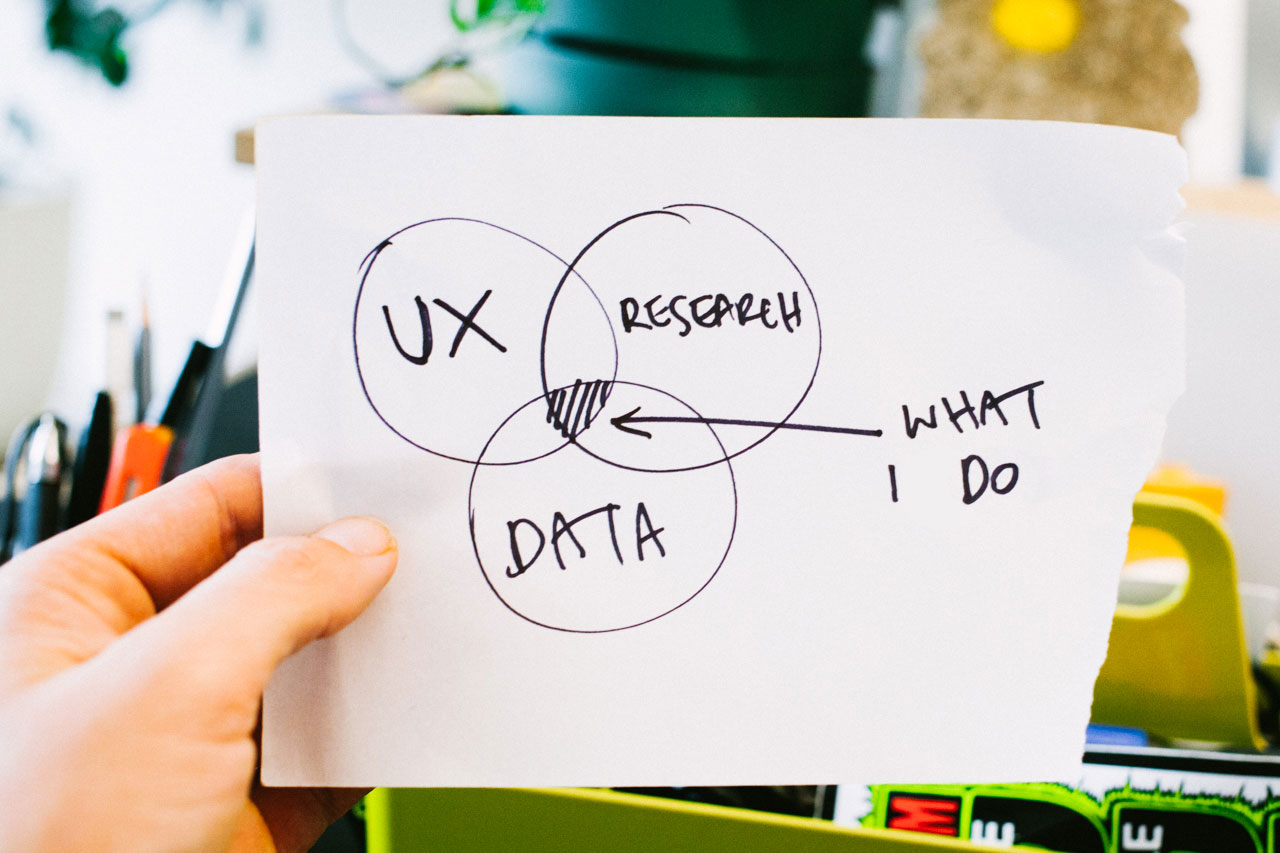 UX
RESEARCH
DATA
WHAT
I DO
M
E
E